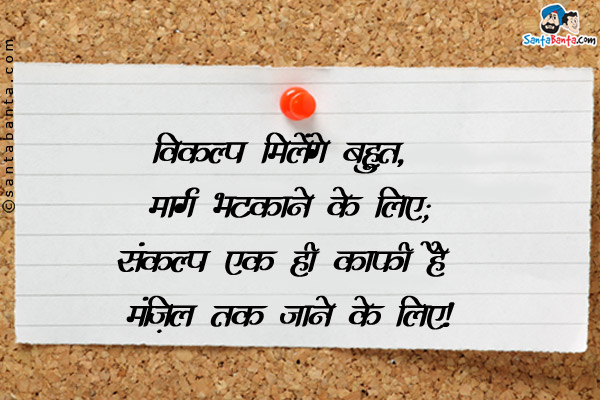 SantaBanta.com
©santabanta.com
विकल्प मिलेंगे बहुत,
मार्ग भटकाने के लिए;
संकल्प एक ही काफी है
मंज़िल तक जाने के लिए!